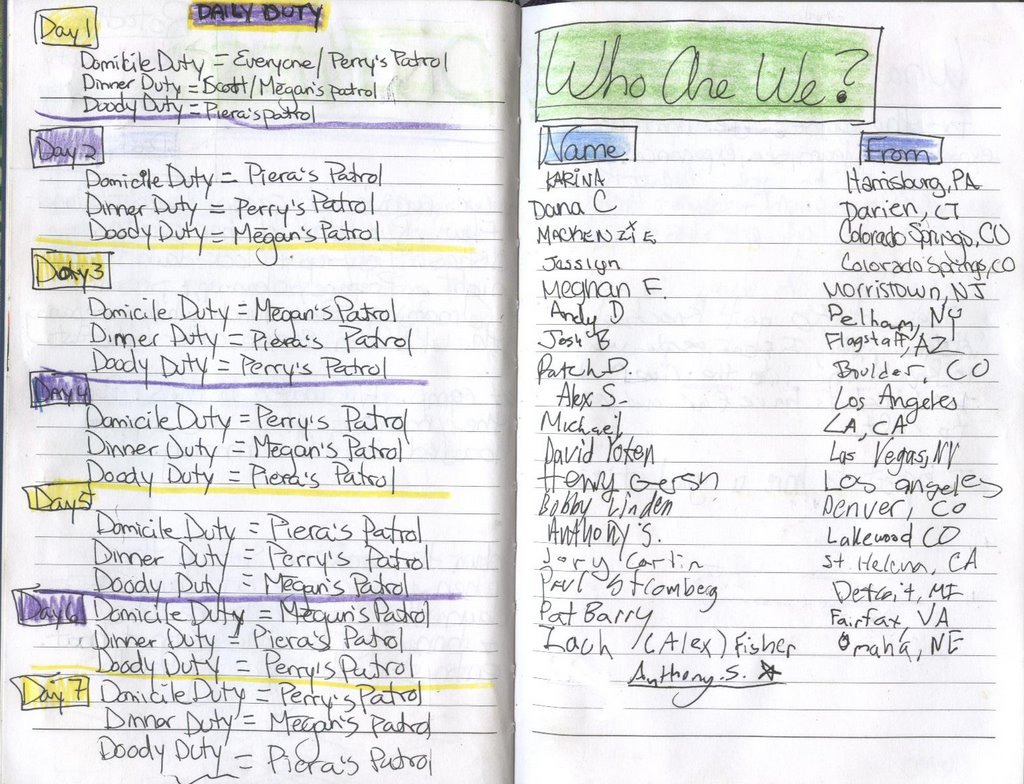 DAILY DUTY
Day 1
Domicile Duty = Everyone/Perry's Patrol
Dinner Duty = Scott/Megan's patrol
Doody Duty = Piera's patrol
Day 2
Domicile Duty = Piera's Patrol
Dinner Duty = Perry's Patrol
Doody Duty = Megan's Patrol
Day 3
Domicile Duty = Megan's Patrol
Dinner Duty = Piera's Patrol
Doody Duty = Perry's Patrol
Day 4
Domicile Duty = Perry's Patrol
Dinner Duty = Megan's Patrol
Doody Duty = Piera's Patrol
Day 5
Domicile Duty = Piera's Patrol
Dinner Duty = Perry's Patrol
Doody Duty = Megan's Patrol
Day 6 Domicile Duty = Megan's Patrol
Dinner Duty = Piera's Patrol
Doody Duty = Perry's Patrol
Day 7 Domicile Duty = Perry's Patrol
Dinner Duty = Megan's Patrol
Doody Duty = Piera's Patrol
Who Are We?
Name From
KARINA Harrisburg, PA
Dana C Darien, CT
MACKENZIE Colorado Springs, CO
Jasslyn Colorado Springs, CO
Meghan F. Morristown, NJ
Andy D Pelham, NY
Josh B Flagstaff, AZ
Patch D. Boulder, CO
Alex S. Los Angeles
Michael LA, CA
David Las Vegas, NV
Henry Gersh Los angeles
Bobby Linden Denver, CO
Anthony S. Lakewood CO
Jory Carlin St Helena, CA
Paul Stromberg Detroit, MI
Pat Barry Fairfax, VA
Zach (Alex) Fisher Omaha, NE
Anthony.S.